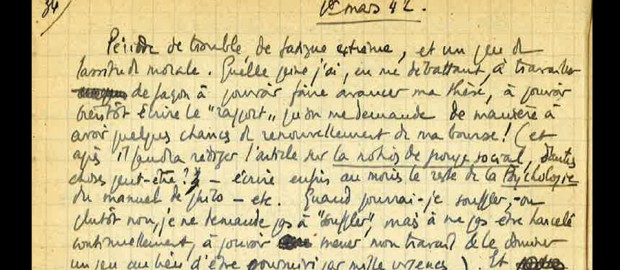 36/
1er mars 42.
Période de trouble de fatigue extrême, et un peu de
lassitude morale. Quelle peine j'ai, en me débattant, à travailler
de façon à pouvoir faire avancer ma thèse, à pouvoir
bientôt écrire le "rapport" qu'on me demande de manière à
avoir quelques chances de renouvellement de ma bourse! (et
après il faudra rédiger l'article sur la notion de groupe social, d'autres
choses peut-être? – écrire enfin au moins le reste de la Psychologie
du manuel de philo – etc. Quand pourrai-je souffler, – ou
plutôt non, je ne demande pas à "souffler", mais à ne pas être harcelé
continuellement, à pouvoir mener mon travail de le dominer
un peu au lieu d'être poursuivi par mille urgences). Et